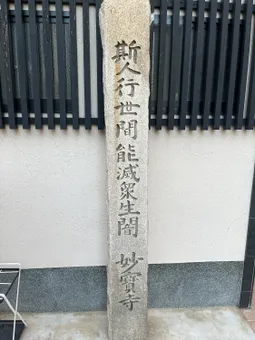 斯人行世間能滅衆生闇 妙寳寺